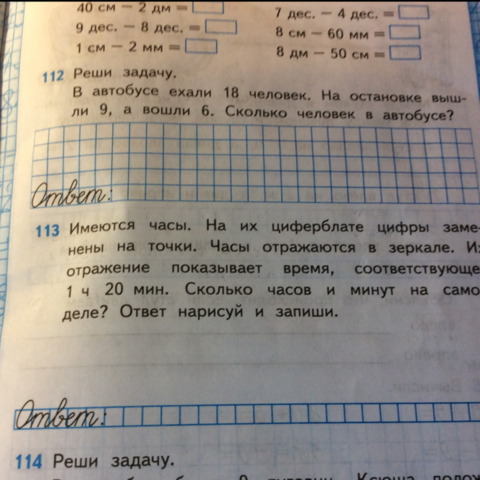 40 см − 2 дм =
7 дес. − 4 дес. =
9 дес. − 8 дес. =
8 см − 60 мм =
1 см − 2 мм =
8 дм − 50 см =
112 Реши задачу.
В автобусе ехали 18 человек. На остановке выш-
ли 9, а вошли 6. Сколько человек в автобусе?
Ответ:
113 Имеются часы. На их циферблате цифры заме-
нены на точки. Часы отражаются в зеркале. Их
отражение показывает время, соответствующе
1 ч 20 мин. Сколько часов и минут на само
деле? Ответ нарисуй и запиши.
Ответ:
114 Реши задачу.